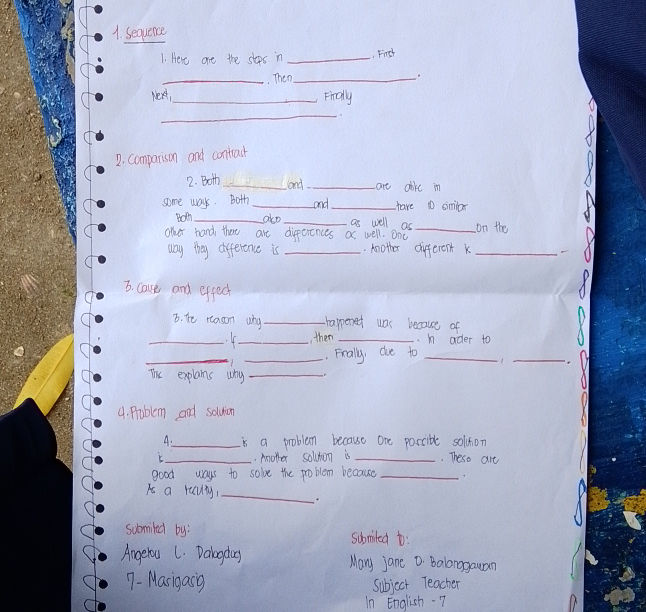 1. Sequence
1. Here are the steps in __________. First
____________. Then ______________.
Next, ______________. Finally
__________________.
2. Comparison and contrast
2. Both ________ and ________ are alike in
some ways. Both ________ and ________ have to similar
Both ________ also ________ as well as ________ on the
other hand, there are differences as well. One
way they difference is ________. Another different is ________.
3. Cause and effect
3. The reason why ________ happened was because of
________. If ________, then ________. In order to
________, ________. Finally, due to ________, ________.
This explains why ________.
4. Problem and solution
4. ________ is a problem because One possible solution
is ________. Another solution is ________. These are
good ways to solve the problem because ________.
As a ________.
Submited by:
Angelou L. Dalogdog
7- Masigasig
Submited to:
Mary Jane D. Balanggawan
Subject Teacher
In English - 7